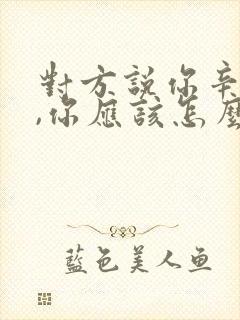 對方說你辛
,你應該怎麼
藍色美人鱼